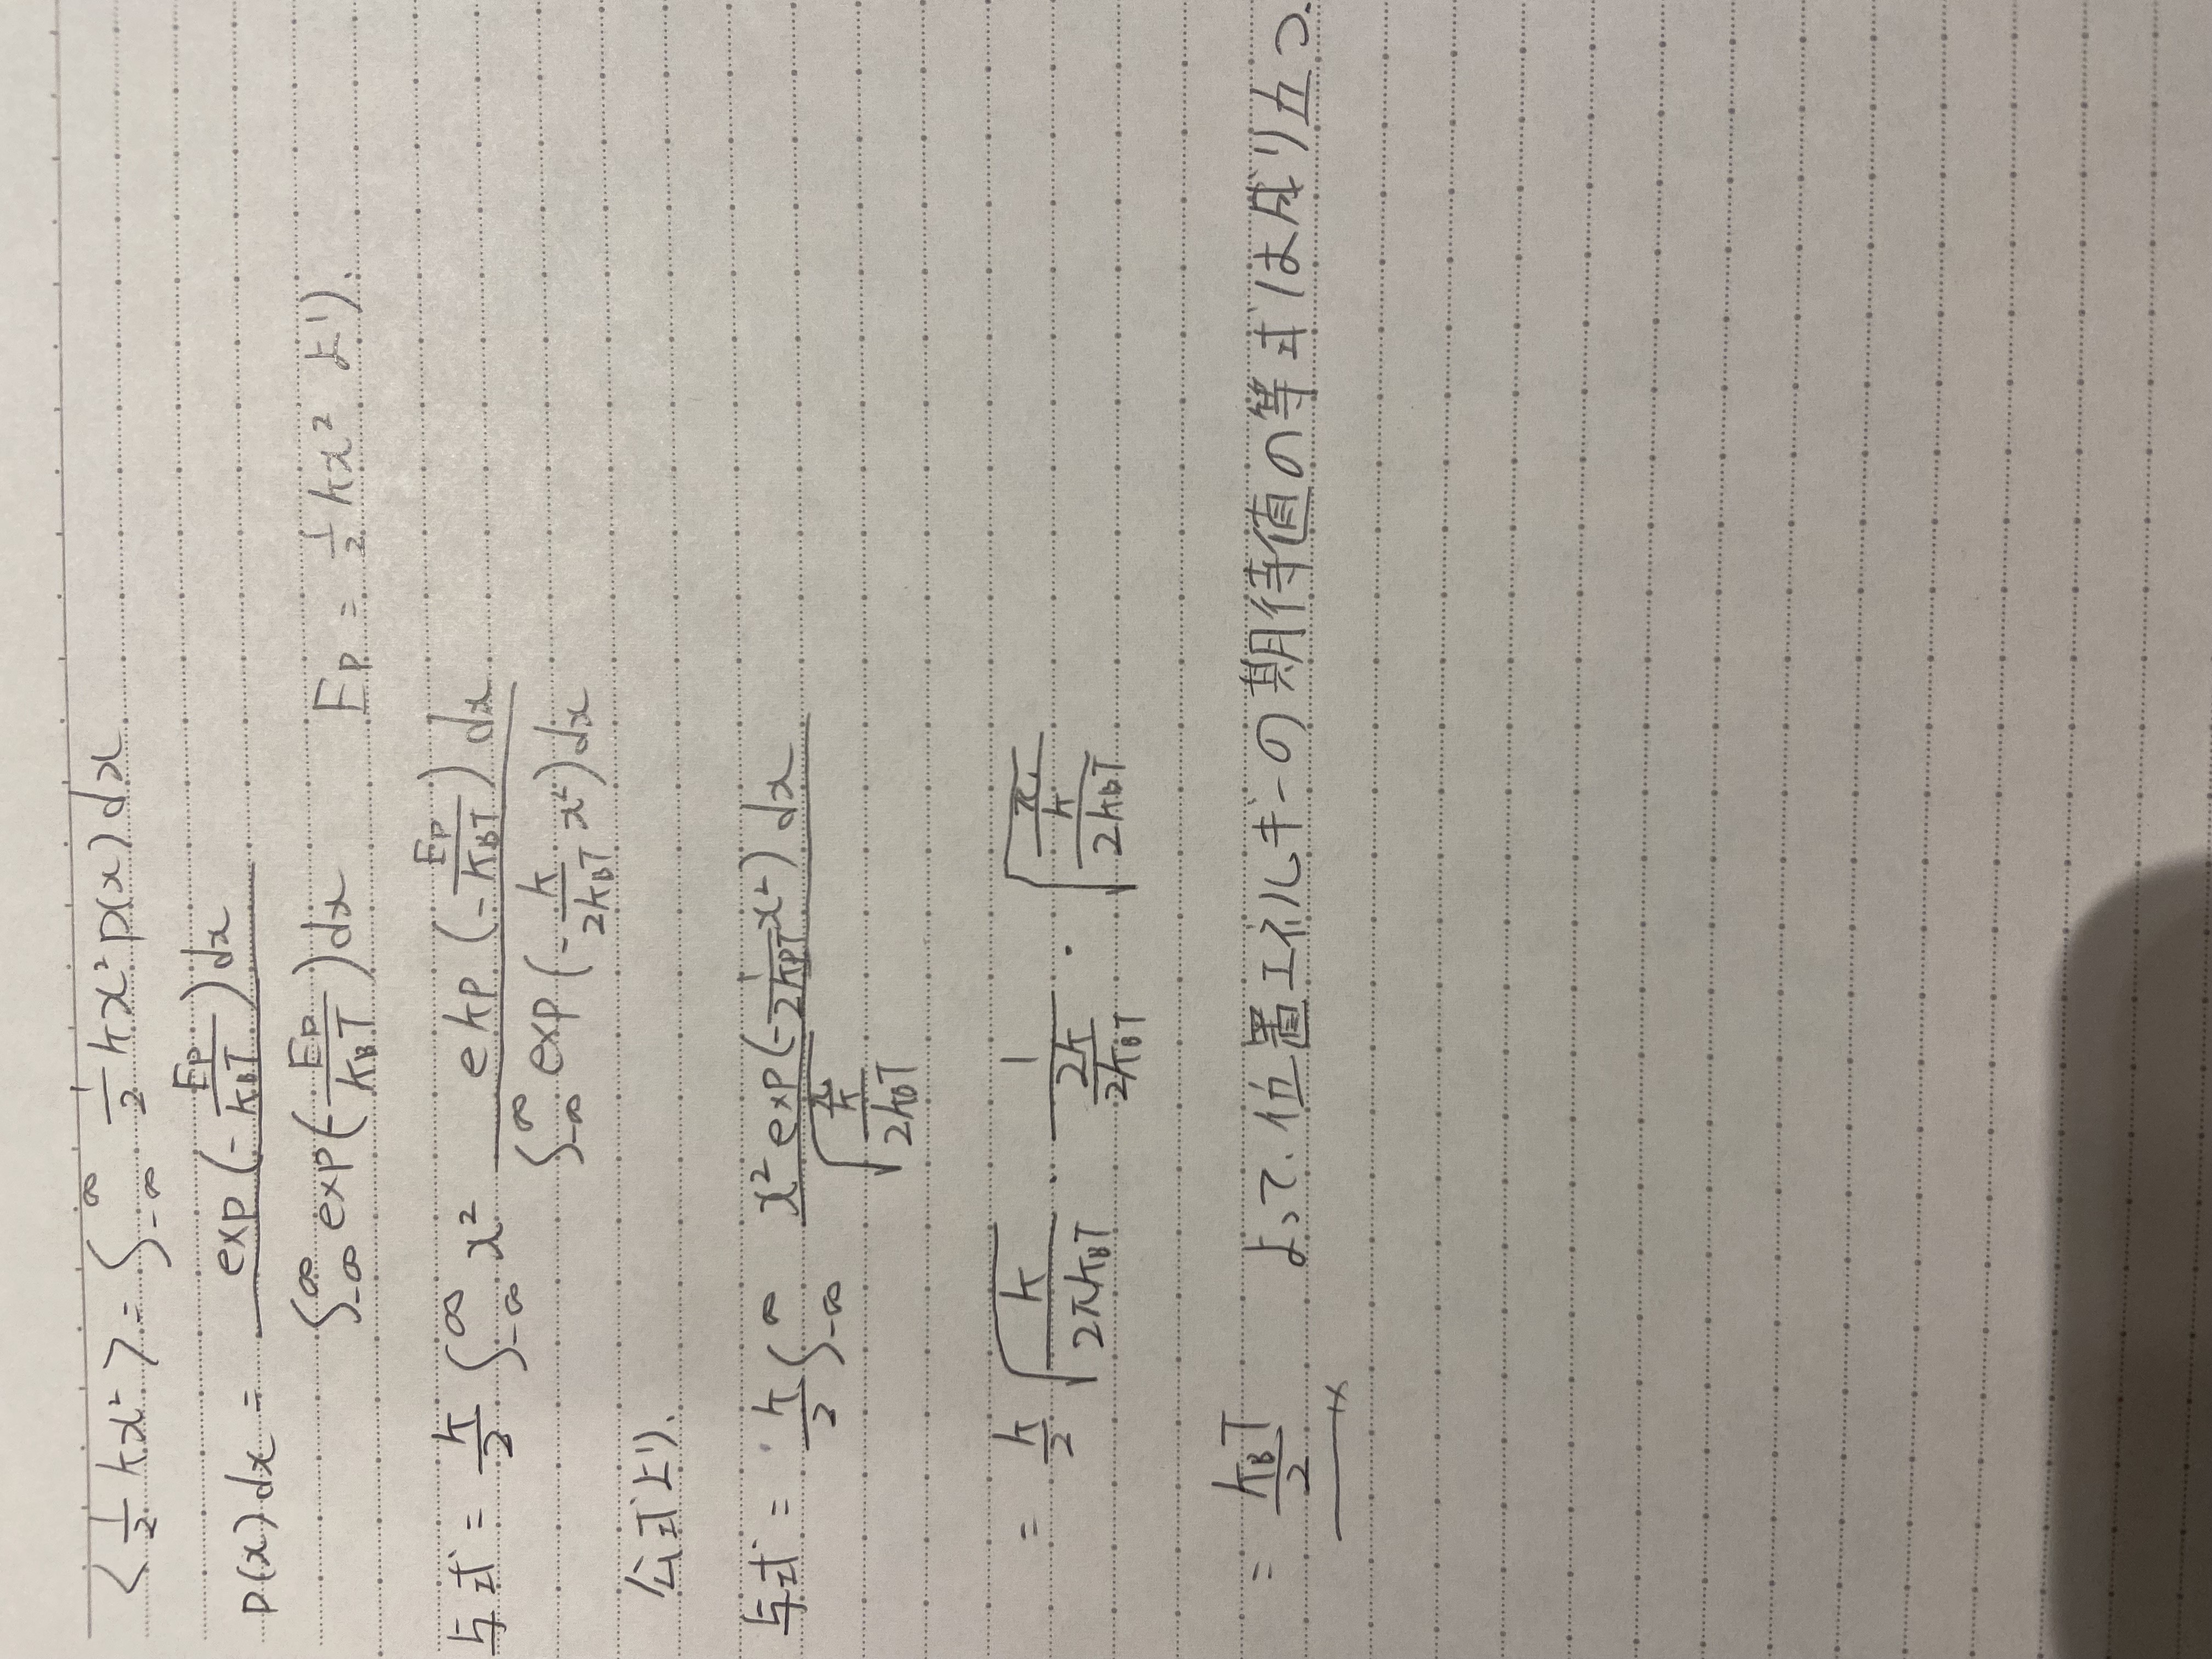 <1/2 kx²> = ∫_{-∞}^{∞} 1/2 kx² p(x) dx
p(x) dx = exp(-Ep/(kBT)) dx / ∫_{-∞}^{∞} exp(-Ep/(kBT)) dx   Ep = 1/2 kx² より、
与式 = k/2 ∫_{-∞}^{∞} x² exp(-Ep/(kBT)) dx / ∫_{-∞}^{∞} exp(-k/(2kBT) x²) dx
公式より、
与式 = k/2 ∫_{-∞}^{∞} x² exp(-1/(2kBT) x²) dx / √(π/(k/(2kBT)))
= k/2 √(k/(2πkBT)) · 1/(2k/(2kBT)) · √(π/(k/(2kBT)))
= kBT/2   よって、位置エネルギーの期待値の等式は成り立つ.